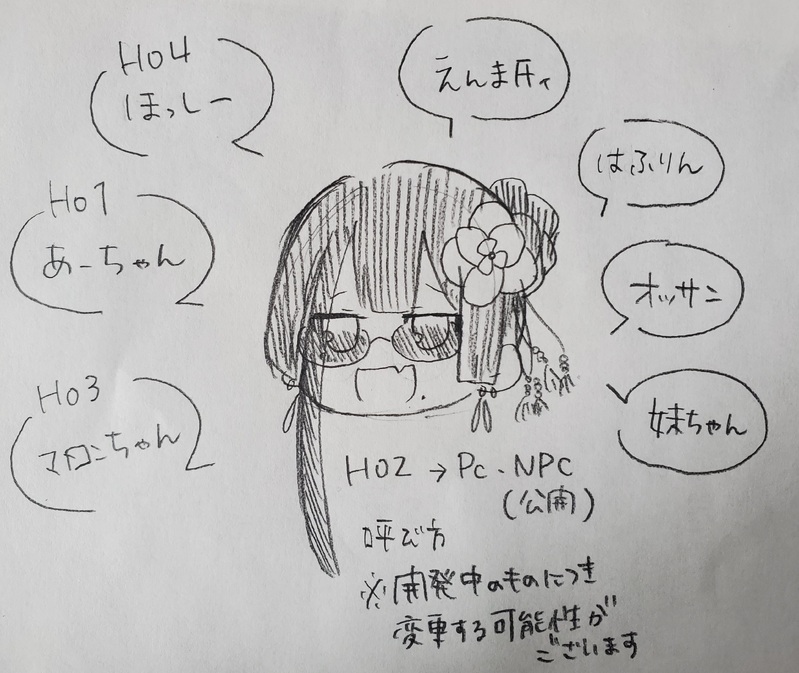 HO4
ほっしー
えんま氏ィ
はふりん
HO1
あーちゃん
オッサン
HO3
マロンちゃん
妹ちゃん
HO2→PC・NPC
(公開)
呼び方
※開発中のものにつき
変更する可能性が
ございます